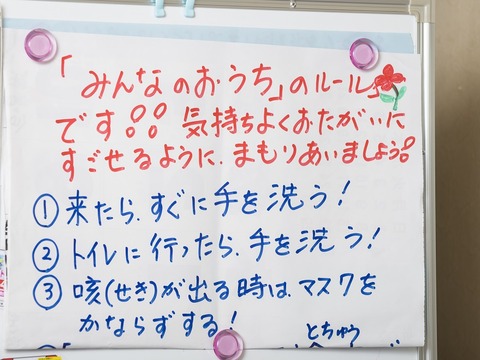 「みんなのおうち」のルール
です!! 気持ちよくおたがいに
すごせるように、まもりあいましょう。
① 来たら、すぐに手を洗う!
② トイレに行ったら、手を洗う!
③ 咳(せき)が出る時は、マスクを
かならずする!
とちゅう